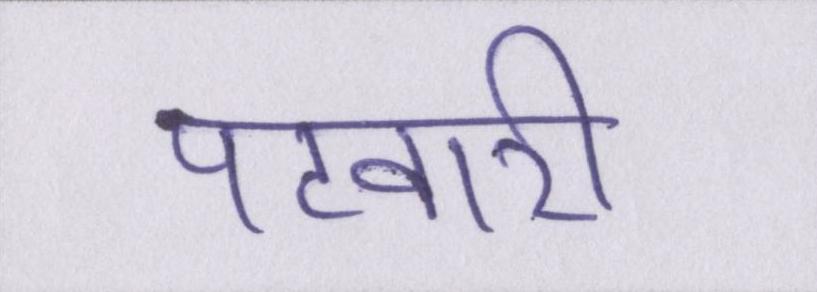 पटवारी